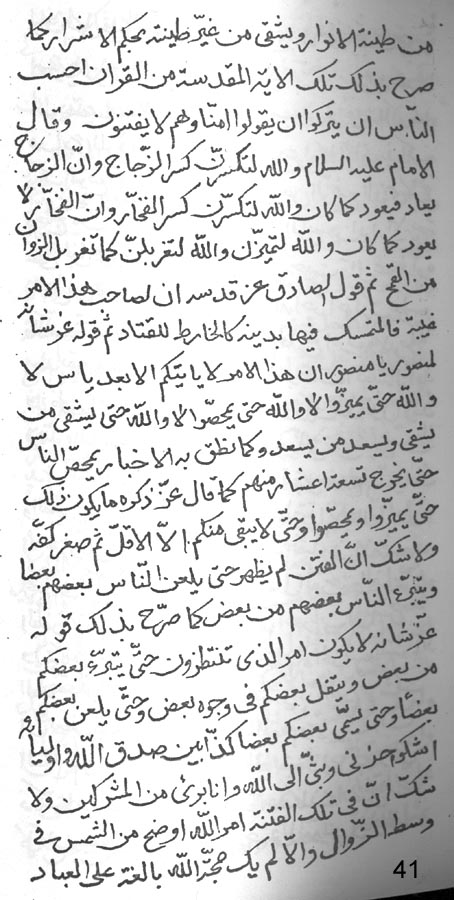 من طينة الانوار ويشقى من غيّر طينته بحكم الاشرار كما
صرح بذلك تلك الاية المقدسة من القران احسب
الناس ان يتركوا ان يقولوا امنّا وهم لا يفتنون وقال
الامام عليه السلام والله لتكسرنّ كسر الزّجاج وانّ الزجاج
يعاد فيعود كما كان والله لتكسرنّ كسر الفخّار وانّ الفخّار لا
يعود كما كان والله لتميزنّ والله لتغربلنّ كما تغربل الزوان
من القمح ثم قول الصادق عز قدسه ان لصاحب هذا الامر
غيبة فالمتمسك فيها بدينه كالخارط للقتاد ثم قوله عزشانه
لمنصور يا منصور ان هذا الامر لا ياتيكم الا بعد ياس لا
والله حتّى يميزوا لا والله حتى يمحصوا لا والله حتى يشقى من
يشقى ويسعد من يسعد وكما نطق به الاخبار يمحص الناس
حتّى يخرج تسعة اعشار منهم كما قال عزّ ذكره ما يكون ذلك
حتّى يميّزوا ويمحصوا وحتّى لا يبقى منكم الّا الاقلّ ثم صغر كفّه
ولا شكّ انّ الفتن لم يظهر حتى يلعن النّاس بعضهم بعضا
ويتبرّء النّاس بعضهم من بعض كما صرّح بذلك قوله
عزّشانه لا يكون امر الذى تنتظرون حتّى يتبرّء بعضكم
من بعض ويتفل بعضكم فى وجوه بعض وحتّى يلعن بعضكم
بعضًا وحتى يسمّى بعضكم بعضا كذّابين صدق الله واوليائه
اشكو حزنى وبثّى الى الله وانا برئ من المشركين ولا
شكّ انّ فى تلك الفتنة امر الله اوضح من الشمس فى
وسط الزّوال والّا لم يك حجّة الله بالغة على العباد
41